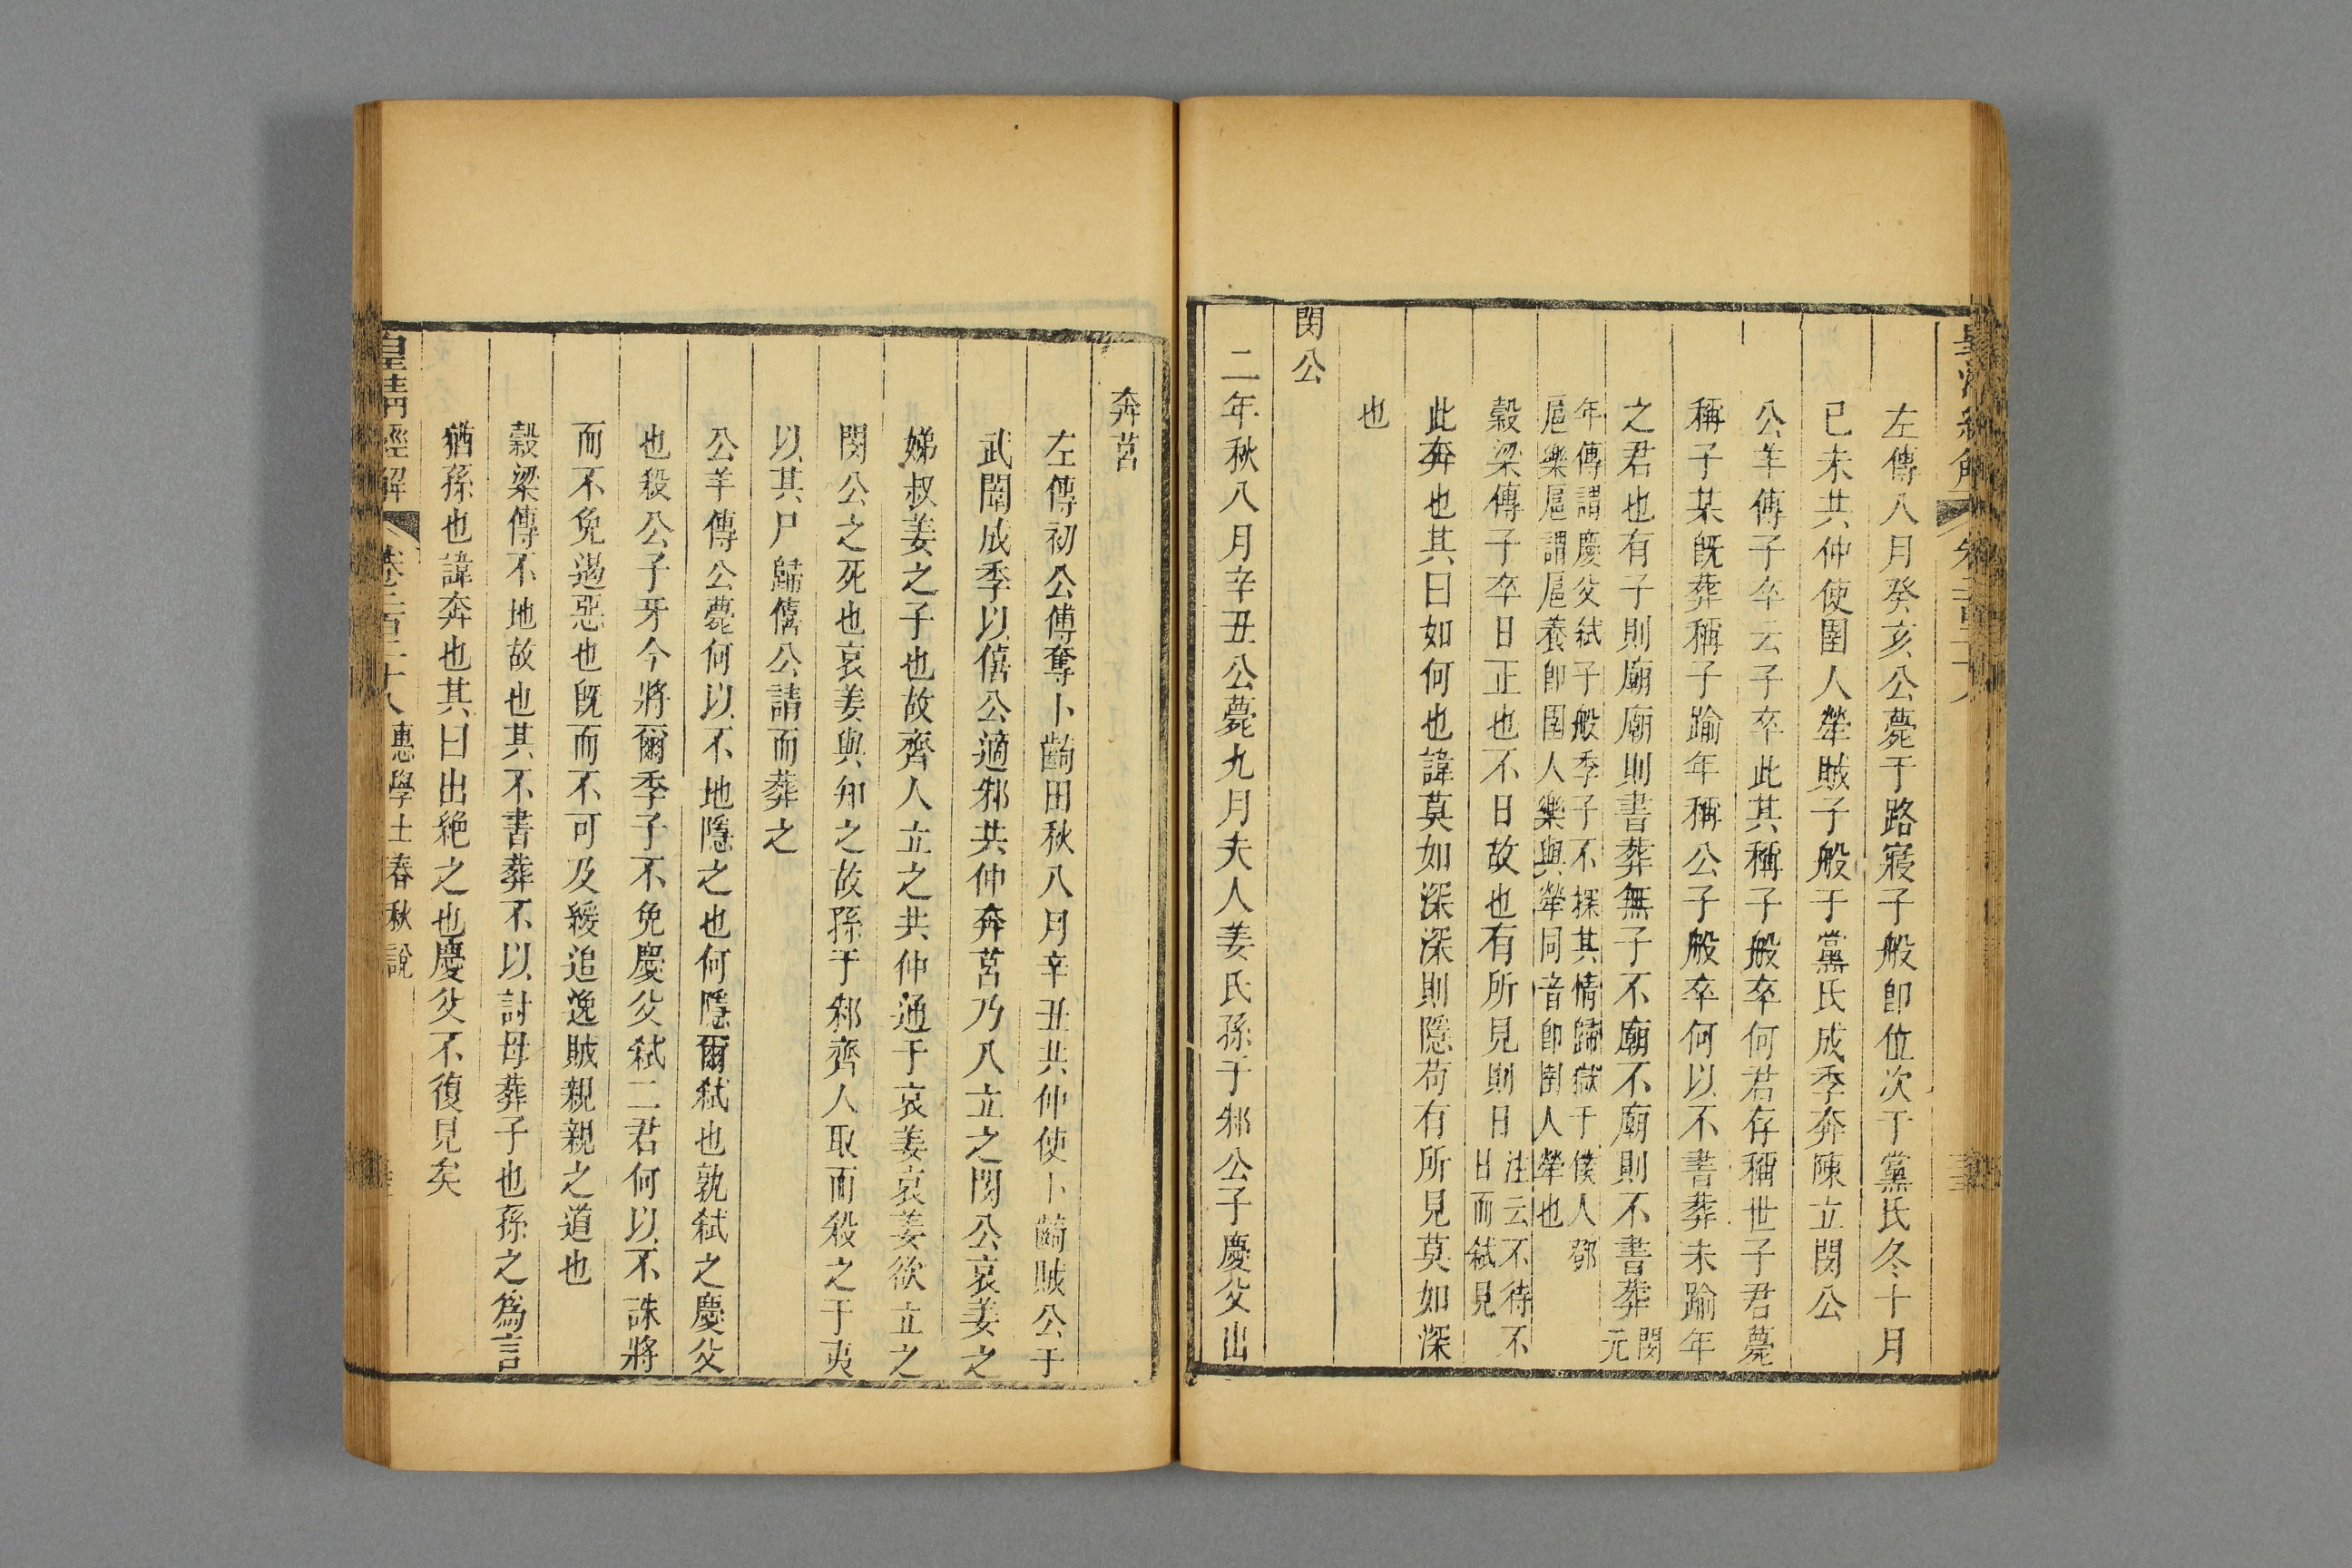 左傳八月癸亥公薨于路寢子般卽位次于黨氏冬十月
己未共仲使圉人犖賊子般于黨氏成季奔陳立閔公
公羊傳子卒云子卒此其稱子般卒何君存稱世子君薨
稱子某旣葬稱子踰年稱公子般卒何以不書葬未踰年
之君也有子則廟廟則書葬無子不廟不廟則不書葬閔元
年傳謂慶父弑子般季子不探其情歸獄于僕人鄧
扈樂扈謂扈養卽圉人樂與犖同音卽圉人犖也
穀梁傳子卒日正也不日故也有所見則日注云不待不
日而弑見
此奔也其曰如何也諱莫如深深則隱苟有所見莫如深
也
閔公
二年秋八月辛丑公薨九月夫人姜氏孫于邾公子慶父出
奔莒
左傳初公傅奪卜齮田秋八月辛丑共仲使卜齮賊公于
武闈成季以僖公適邾共仲奔莒乃入立之閔公哀姜之
娣叔姜之子也故齊人立之共仲通于哀姜哀姜欲立之
閔公之死也哀姜與知之故孫于邾齊人取而殺之于夷
以其尸歸僖公請而葬之
公羊傳公薨何以不地隱之也何隱爾弑也孰弑之慶父
也殺公子牙今將爾季子不免慶父弑二君何以不誅將
而不免遏惡也旣而不可及緩追逸賊親親之道也
穀梁傳不地故也其不書葬不以討母葬子也孫之爲言
猶孫也諱奔也其曰出絶之也慶父不復見矣
皇淸經解
卷二百二十八惠學士春秋說